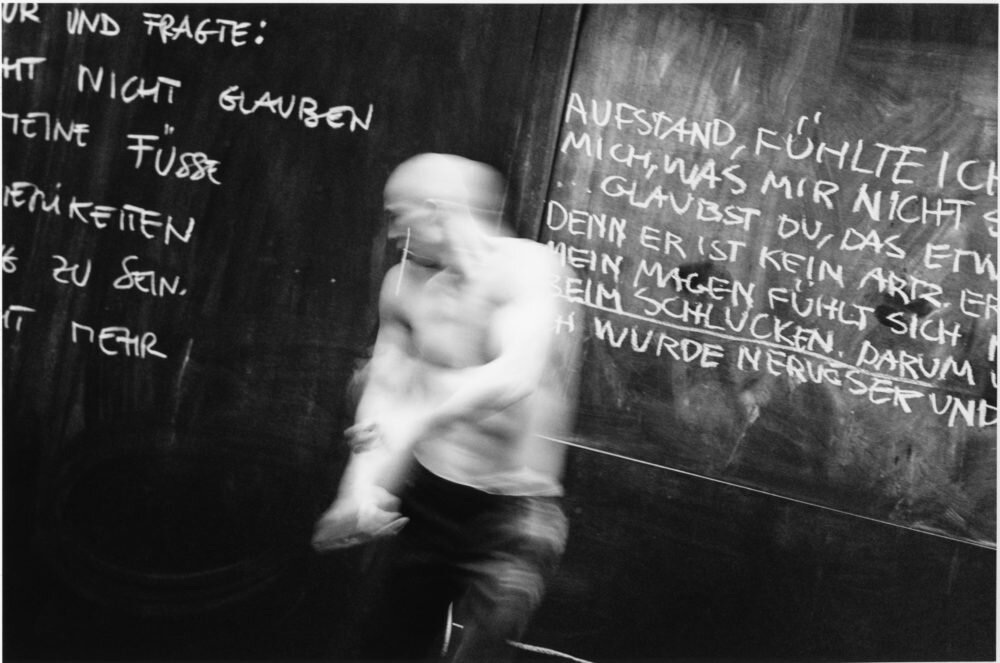 UR UND FRAGTE:
HT NICHT GLAUBEN
MEINE FÜSSE
ERIKEITEN
ZU SEIN.
HT MEHR
AUFSTAND, FÜHLTE ICH
MICH, WAS MIR NICHT S
... GLAUBST DU, DAS ETW
DENN ER IST KEIN ARTZ. ER
MEIN MAGEN FÜHLT SICH
BEIM SCHLUCKEN. DARUM
H WURDE NERUGSER UND